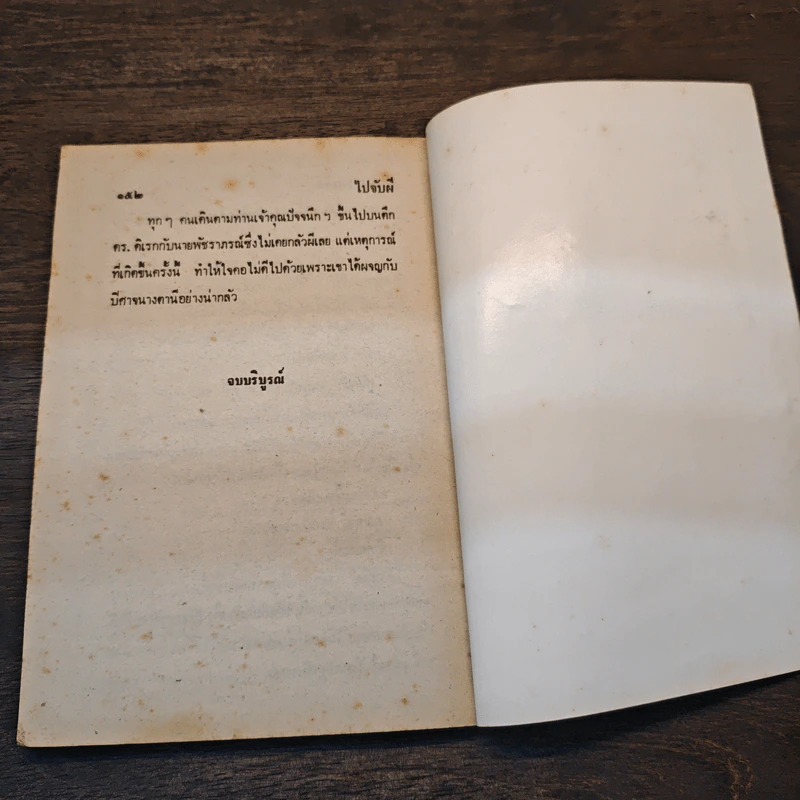 ๑๕๒ ไปจับผี
ทุก ๆ คนเดินตามท่านเจ้าคุณปัจจนึก ฯ ขึ้นไปบนตึก
ดร. ดิเรกกับนายพัชราภรณ์ซึ่งไม่เคยกลัวผีเลย แต่เหตุการณ์
ที่เกิดขึ้นครั้งนี้ ทำให้ใจคอไม่ดีไปด้วยเพราะเขาได้ผจญกับ
ปีศาจนางตานีอย่างน่ากลัว
จบบริบูรณ์